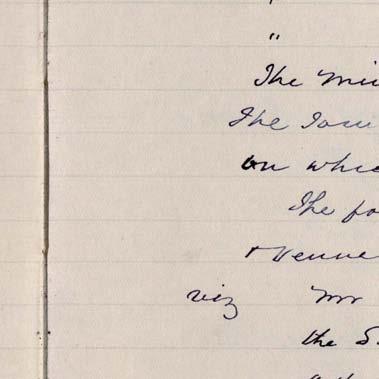 "
The Min
The Town
on whic
The fo
+ Venue
viz Mr
the S